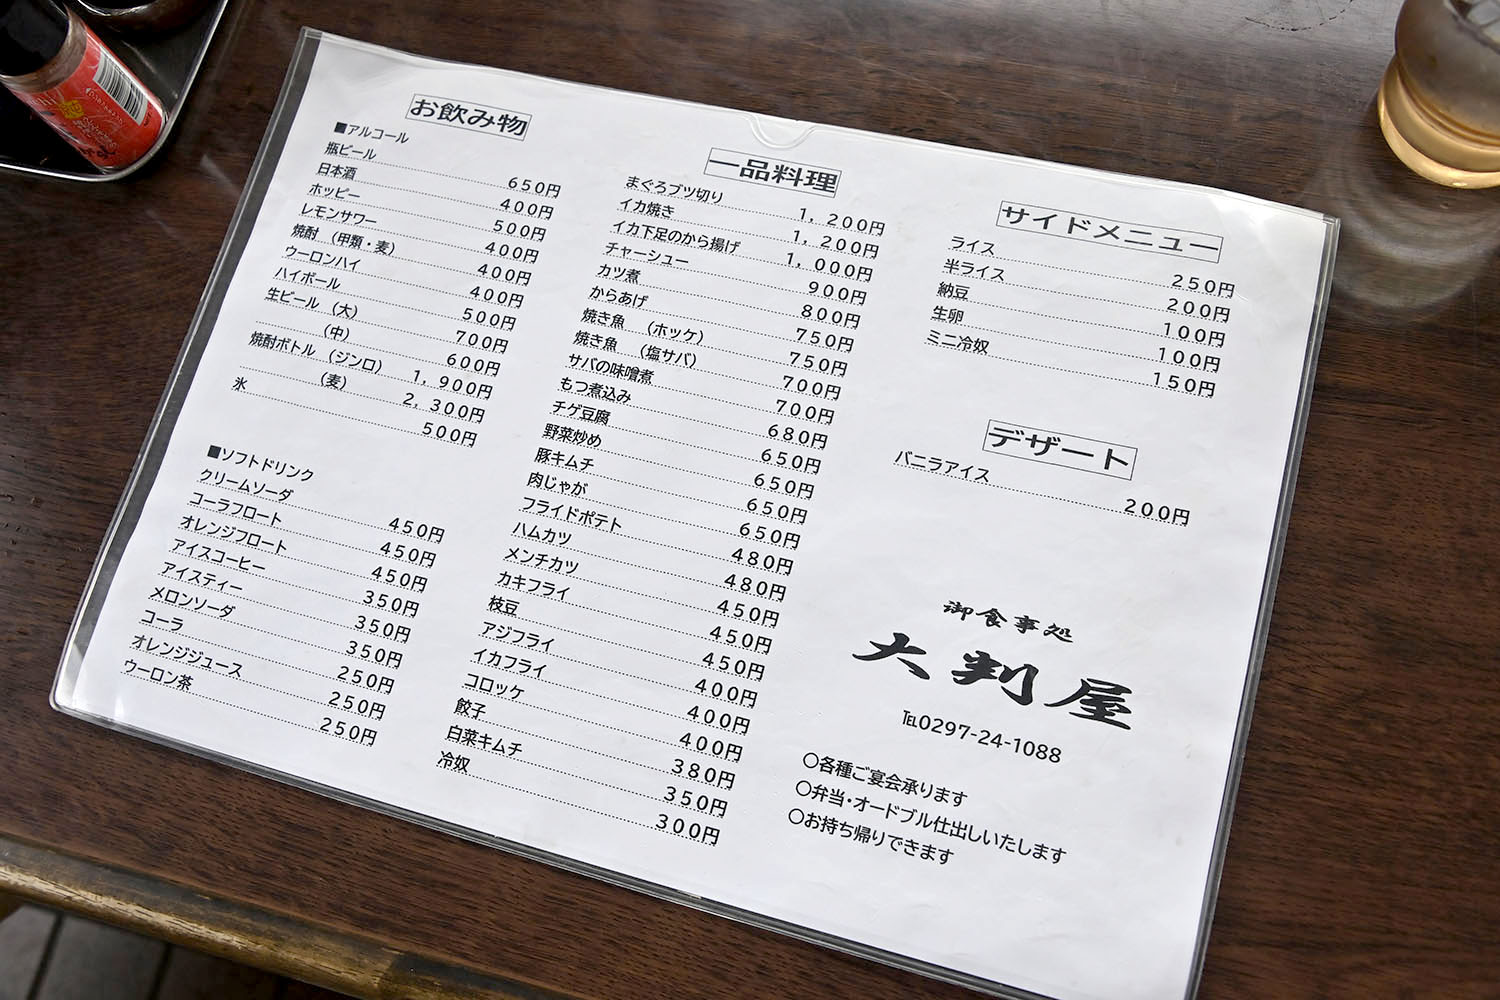 お飲み物
■アルコール
瓶ビール 650円
日本酒 400円
ホッピー 500円
レモンサワー 400円
焼酎 (甲類・麦) 400円
ウーロンハイ 400円
ハイボール 500円
生ビール (大) 700円
(中) 600円
焼酎ボトル (ジンロ) 1,900円
(麦) 2,300円
氷 500円
■ソフトドリンク
クリームソーダ 450円
コーラフロート 450円
オレンジフロート 450円
アイスコーヒー 350円
アイスティー 350円
メロンソーダ 350円
コーラ 250円
オレンジジュース 250円
ウーロン茶 250円
一品料理
まぐろブツ切り 1,200円
イカ焼き 1,200円
イカ下足のから揚げ 1,000円
チャーシュー 900円
カツ煮 800円
からあげ 750円
焼き魚 (ホッケ) 750円
焼き魚 (塩サバ) 700円
サバの味噌煮 700円
もつ煮込み 680円
チゲ豆腐 650円
野菜炒め 650円
豚キムチ 650円
肉じゃが 650円
フライドポテト 480円
ハムカツ 480円
メンチカツ 450円
カキフライ 450円
枝豆 450円
アジフライ 400円
イカフライ 400円
コロッケ 400円
餃子 380円
白菜キムチ 350円
冷奴 300円
サイドメニュー
ライス 250円
半ライス 200円
納豆 100円
生卵 100円
ミニ冷奴 150円
デザート
バニラアイス 200円
御食事処
大判屋
℡0297-24-1088
○各種ご宴会承ります
○弁当・オードブル仕出しいたします
○お持ち帰りできます